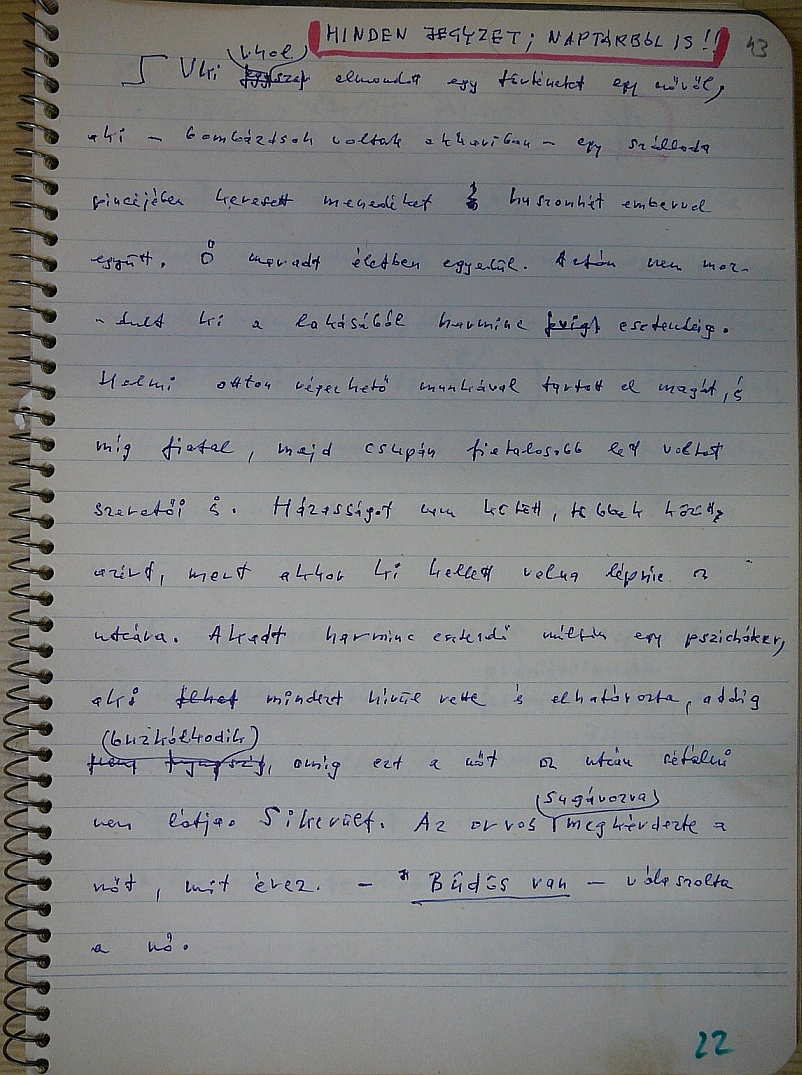 MINDEN JEGYZET; NAPTÁRBÓL IS!! 43
Vhol
Vki egyszer elmondott egy történetet egy nőről,
aki – bombázások voltak akkoriban – egy szálloda
pincéjében keresett menedéket huszonhét emberrel
együtt. Ő maradt életben egyedül. Aztán nem moz-
-dult ki a lakásából harminc esztendeig.
Valami otton végezhető munkával tartott el magát, és
míg fiatal, majd csupán fiatalosabb lett voltat
szeretői is. Házasságot nem kötött, többek között
azért, mert akkor ki kellett volna lépnie az
utcára. Akadt harminc esztendő múltán egy pszichiáter,
aki mindezt hírül vette és elhatározta, addig
(buzkólkodik)
amíg ezt a nőt az utcán sétálni
(sugározva)
nem látja. Sikerült. Az orvos megkérdezte a
nőt, mit érez. – "Büdös van – válaszolta
a nő.
22